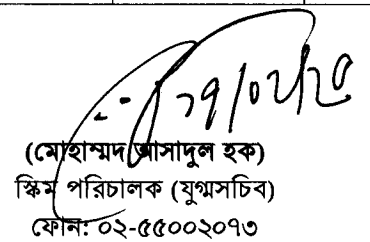 (মোহাম্মদ আসাদুল হক)
স্কিম পরিচালক (যুগ্মসচিব)
ফোন: ০২-৫৫০০২০৭৩